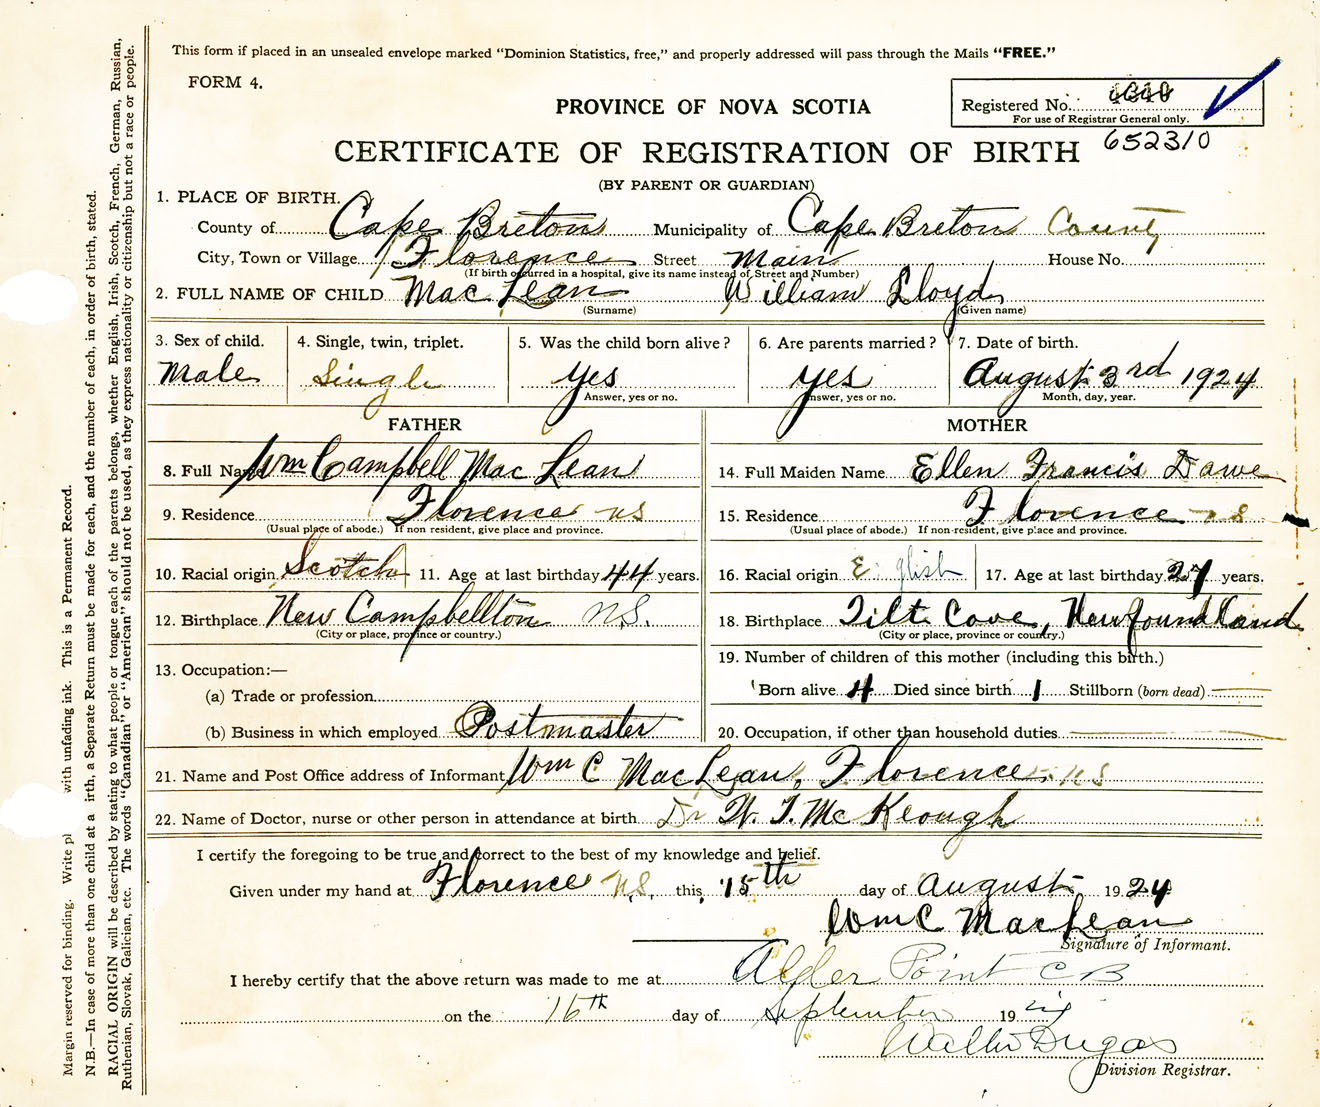 This form if placed in an unsealed envelope marked "Dominion Statistics, free," and properly addressed will pass through the Mails "FREE."
FORM 4.
PROVINCE OF NOVA SCOTIA
Registered No.
For use of Registrar General only.
652310
CERTIFICATE OF REGISTRATION OF BIRTH
(BY PARENT OR GUARDIAN)
1. PLACE OF BIRTH.
County of Cape Breton Municipality of Cape Breton County
City, Town or Village Florence Street Main House No.
(If birth occurred in a hospital, give its name instead of Street and Number)
2. FULL NAME OF CHILD MacLean William Lloyd
(Surname) (Given name)
3. Sex of child. 4. Single, twin, triplet. 5. Was the child born alive? 6. Are parents married? 7. Date of birth.
Male Single yes yes August 3rd 1924
Answer, yes or no. Answer, yes or no. Month, day, year.
FATHER MOTHER
8. Full Name Wm Campbell MacLean 14. Full Maiden Name Ellen Francis Dawe
9. Residence Florence NS 15. Residence Florence NS
(Usual place of abode.) If non resident, give place and province. (Usual place of abode.) If non-resident, give place and province.
10. Racial origin Scotch 11. Age at last birthday 44 years. 16. Racial origin English 17. Age at last birthday 27 years.
12. Birthplace New Campbellton N.S. 18. Birthplace Tilt Cove, Newfoundland
(City or place, province or country.) (City or place, province or country.)
13. Occupation:— 19. Number of children of this mother (including this birth.)
(a) Trade or profession Born alive 4 Died since birth 1 Stillborn (born dead)
(b) Business in which employed Postmaster 20. Occupation, if other than household duties
21. Name and Post Office address of Informant Wm C MacLean, Florence NS
22. Name of Doctor, nurse or other person in attendance at birth Dr W. J. McKeough
I certify the foregoing to be true and correct to the best of my knowledge and belief.
Given under my hand at Florence N.S. this 15th day of August 1924
Wm C MacLean
Signature of Informant.
I hereby certify that the above return was made to me at Alder Point CB
on the 16th day of September 1924
Dugas
Division Registrar.
Margin reserved for binding. Write pl with unfading ink. This is a Permanent Record.
N.B.—In case of more than one child at a irth, a Separate Return must be made for each, and the number of each, in order of birth, stated.
RACIAL ORIGIN will be described by stating to what people or tongue each of the parents belongs, whether English, Irish, Scotch, French, German, Russian,
Ruthenian, Slovak, Galician, etc. The words "Canadian" or "American" should not be used, as they express nationality or citizenship but not a race or people.